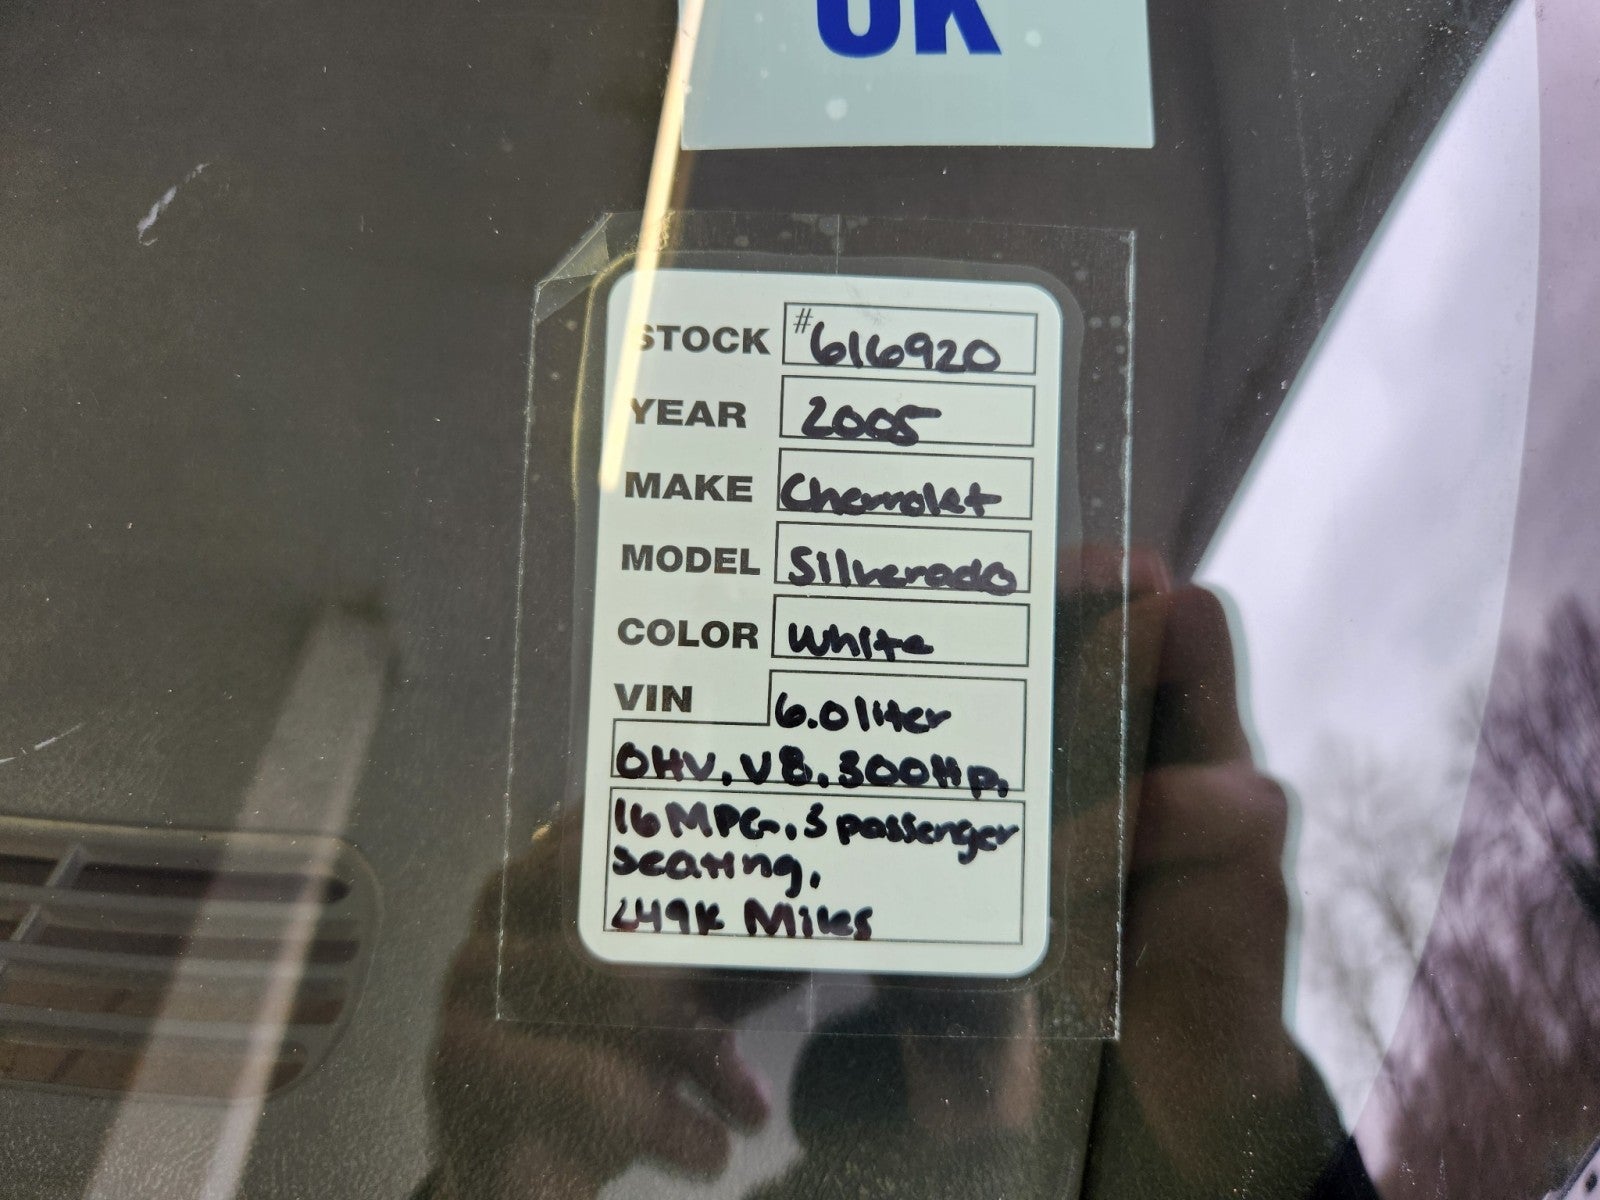 OK
STOCK #616920
YEAR 2005
MAKE Chevrolet
MODEL Silverado
COLOR White
VIN 6.0 liter
OHV, V8, 300Hp,
16 MPG, 3 passenger
seating,
249K Miles